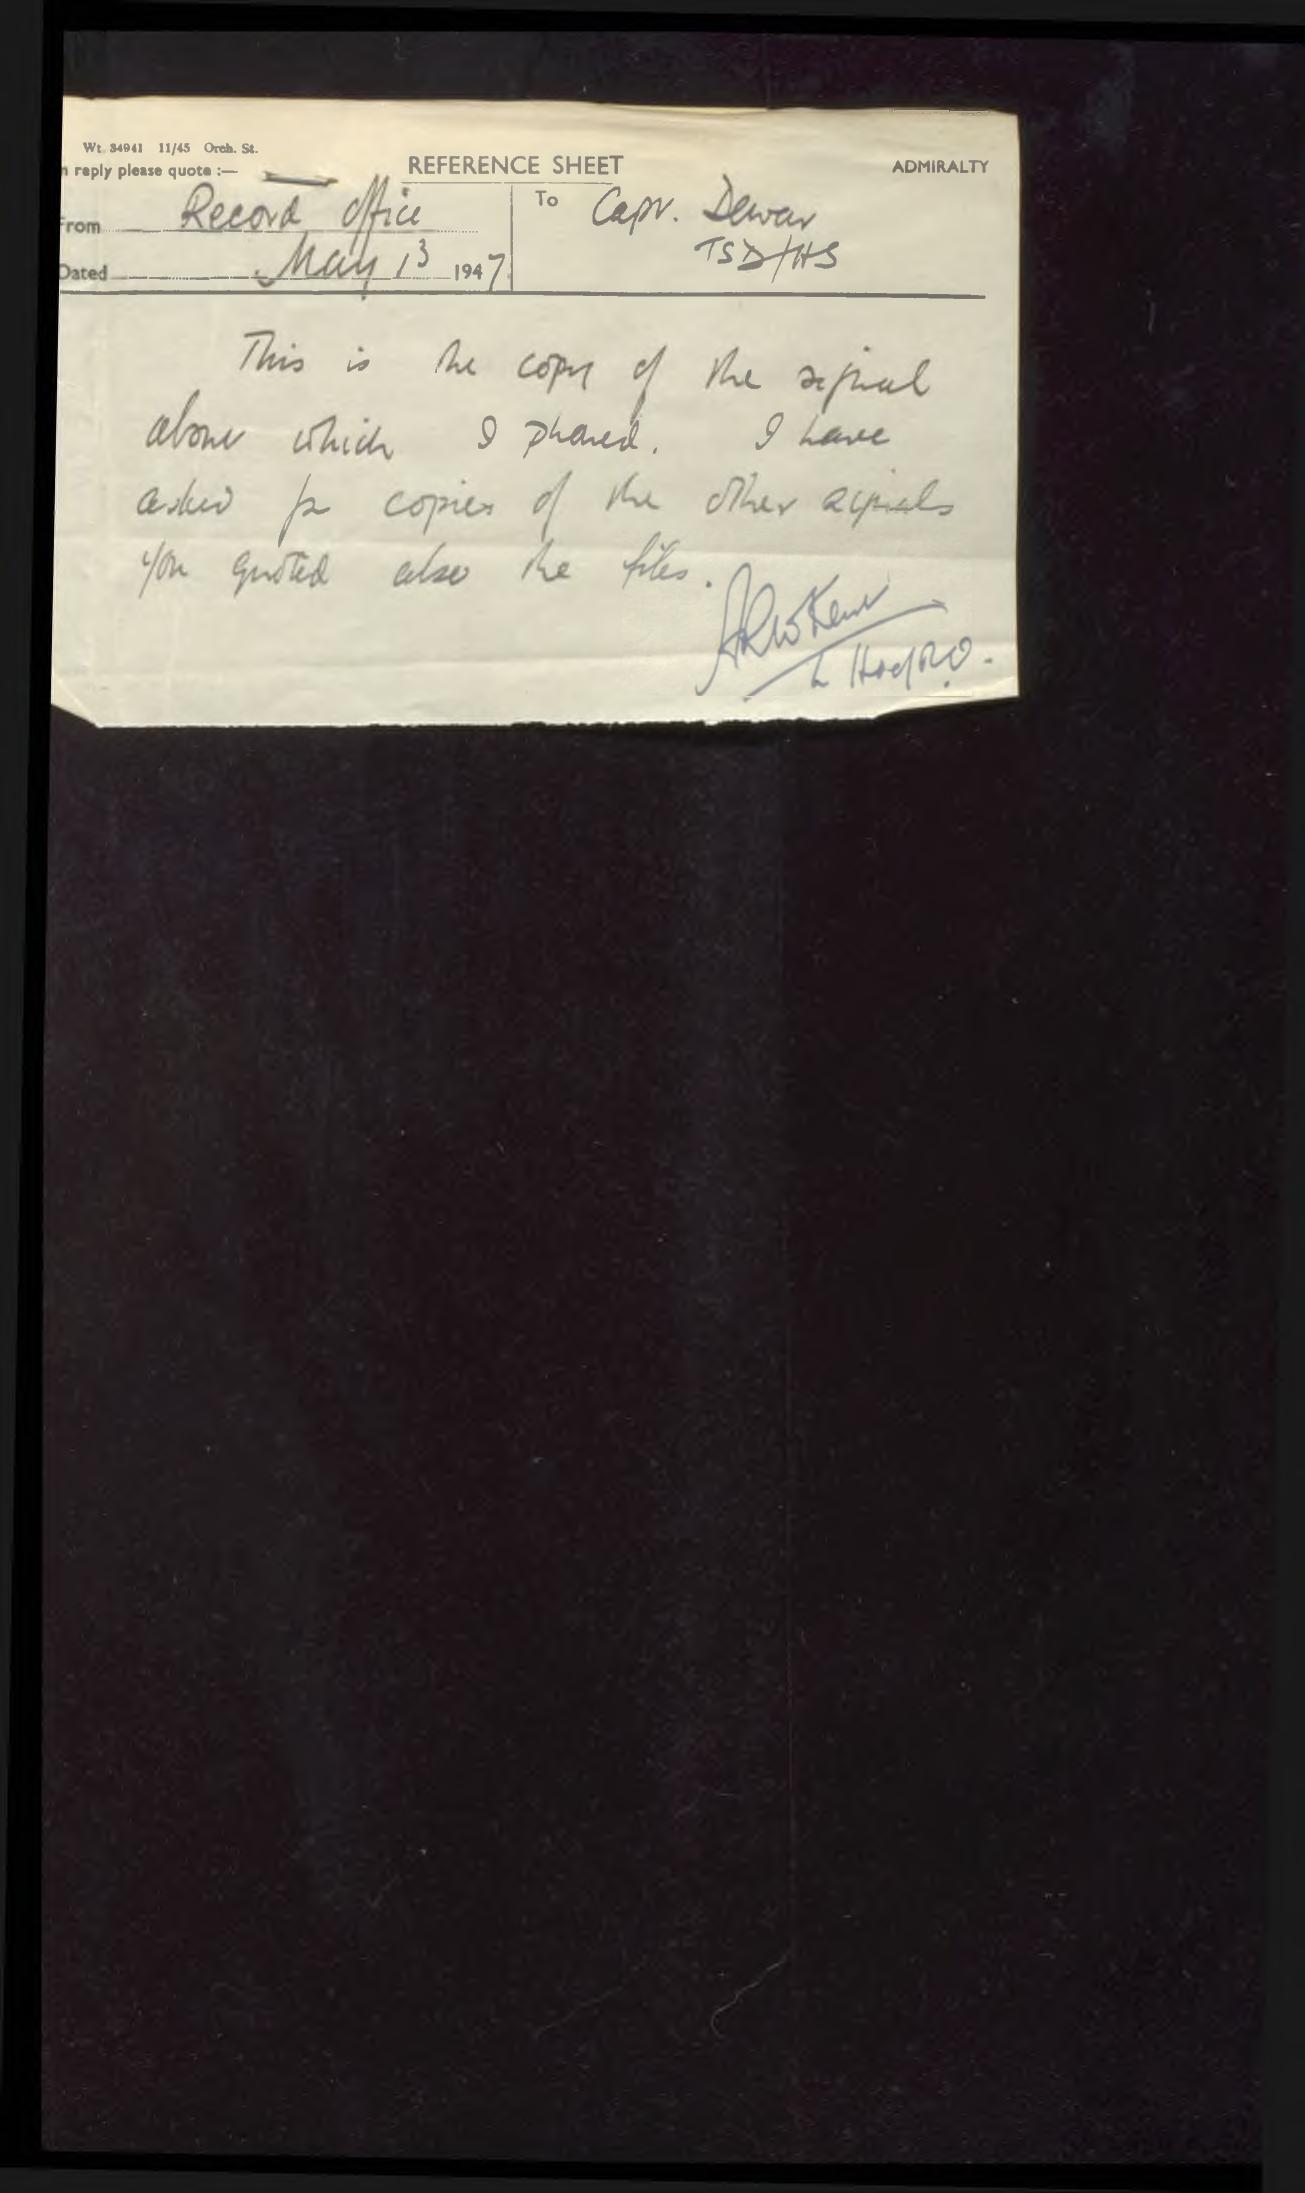 Wt. 34941 11/45 Orch. St.
n reply please quote :—
REFERENCE SHEET
ADMIRALTY
From Record Office
To Capt. Dewar
TSD/HS
Dated May 13 1947
This is the copy of the signal
about which I phoned. I have
asked for copies of the other signals
you quoted also the files.